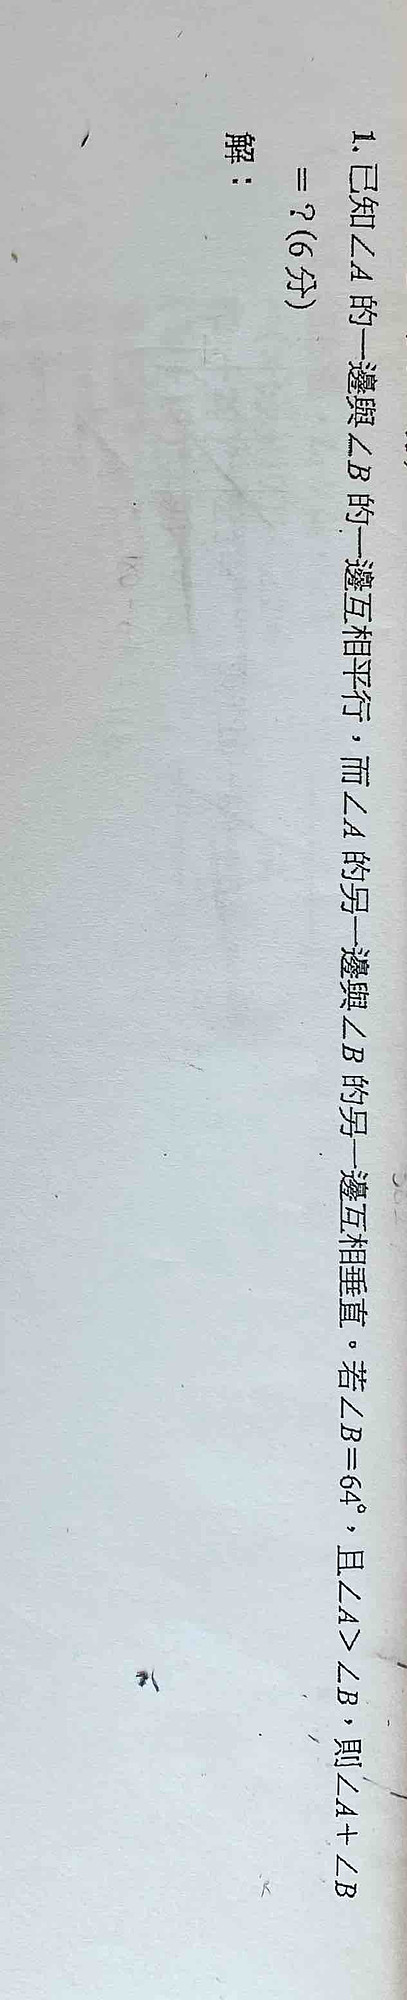 1. 已知∠A的一邊與∠B的一邊互相平行，而∠A的另一邊與∠B的另一邊互相垂直。若∠B=64°，且∠A>∠B，則∠A+∠B
=？(6分)
解：